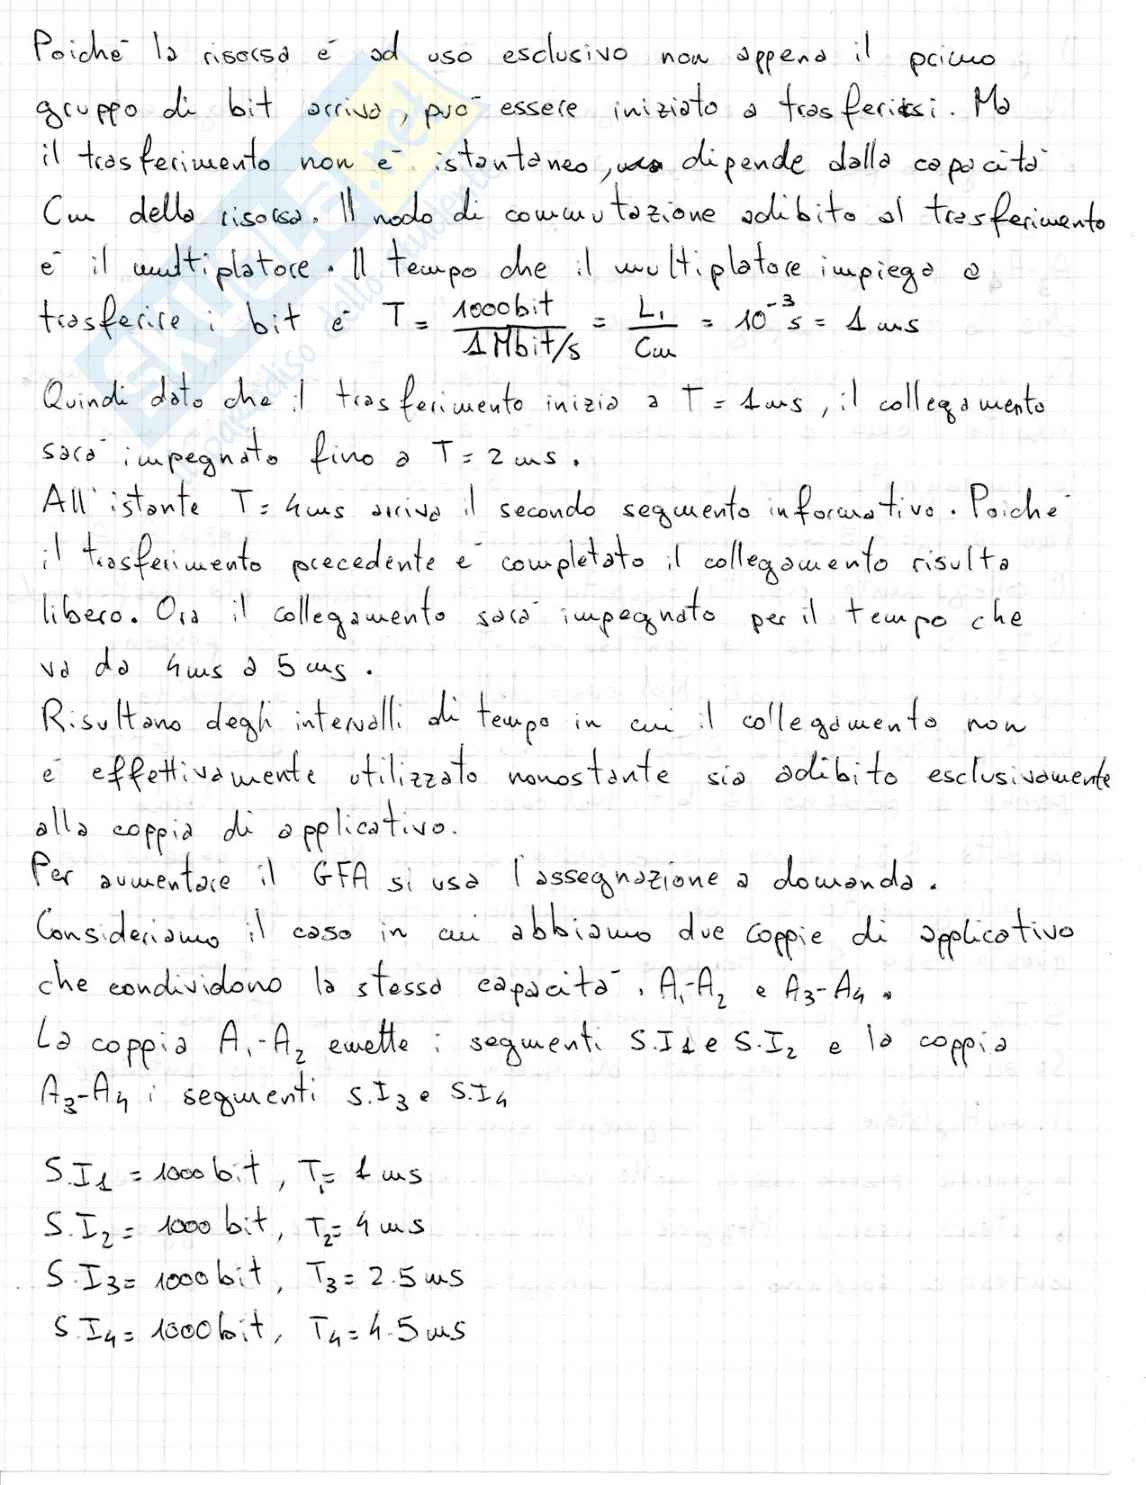 Poichè la risorsa è ad uso esclusivo non appena il primo
gruppo di bit arriva, può essere iniziato a trasferirsi. Ma
il trasferimento non è istantaneo, ma dipende dalla capacità
Cm della risorsa. Il nodo di commutazione adibito al trasferimento
è il multiplatore. Il tempo che il multiplatore impiega a
trasferire i bit è T = 1000bit / 1Mbit/s = L1 / Cm = 10^-3 s = 1 ms
Quindi dato che il trasferimento inizia a T = 1ms, il collegamento
sarà impegnato fino a T = 2 ms.
All'istante T = 4ms arriva il secondo segmento informativo. Poichè
il trasferimento precedente è completato il collegamento risulta
libero. Ora il collegamento sarà impegnato per il tempo che
va da 4ms a 5 ms.
Risultano degli intervalli di tempo in cui il collegamento non
è effettivamente utilizzato nonostante sia adibito esclusivamente
alla coppia di applicativo.
Per aumentare il GFA si usa l'assegnazione a domanda.
Consideriamo il caso in cui abbiamo due coppie di applicativo
che condividono la stessa capacità, A1-A2 e A3-A4.
La coppia A1-A2 emette i segmenti S.I1 e S.I2 e la coppia
A3-A4 i segmenti S.I3 e S.I4
S.I1 = 1000 bit, T1 = 1 ms
S.I2 = 1000 bit, T2 = 4 ms
S.I3 = 1000 bit, T3 = 2.5 ms
S.I4 = 1000 bit, T4 = 4.5 ms
SKUOLA.net
il paradiso dello studente